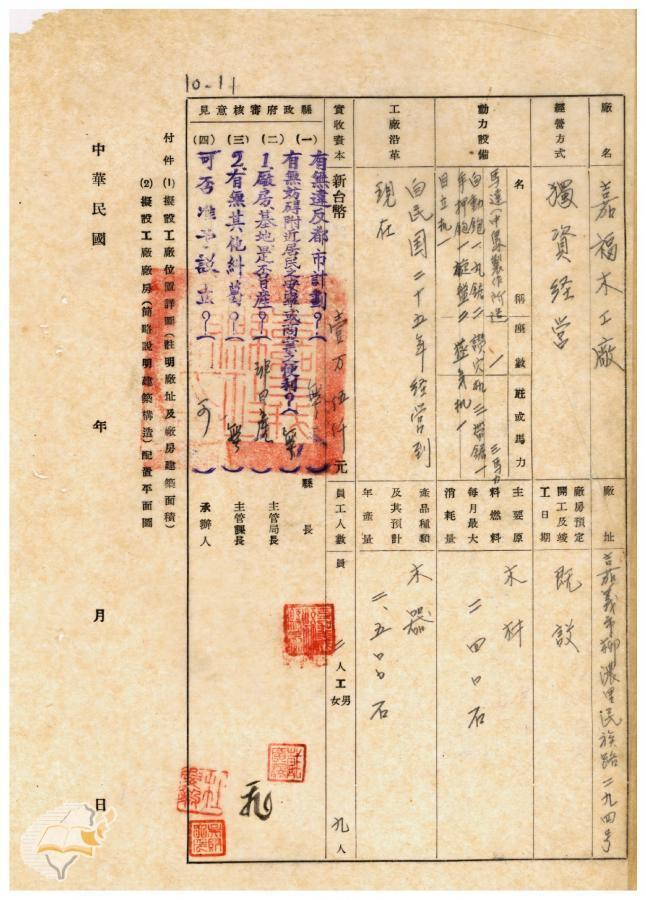 10-11
廠名 嘉福木工廠
廠址 嘉義市柳濃里民族路二九四号
經營方式 獨資経営
廠房預定開工及竣工日期 既設
動力設備
名稱 座數 砥或馬力
馬達(中島製作所造 一 三馬力
自動鉋一 丸鋸二 鑽穴机三 帶鋸一
手押鉋一 旋盤二
目立机一
主要原料燃料每月最大消耗量 木材 二四〇石
工廠沿革 自民国二十五年経営到現在
產品種類及其預計年產量 木器 二、五〇〇石
實收資本 新台幣 壹万伍仟 元
員工人數 員 二人 工 男 九人 女
縣政府審核意見
(一)有無違反都市計劃?( 無 )
(二)有無妨碍附近居民之安寧或商業之便利?( 無 )
1.廠房基地是否自產?(
(三)2.有無其他糾葛?( 無 )
(四)可否准予設立?( 可 )
縣長
主管局長
主管課長
承辦人
付件(1)擬設工廠位置詳圖(註明廠址及廠房建築面積)
(2)擬設工廠廠房(簡略說明建築構造)配置平面圖
中華民國 年 月 日